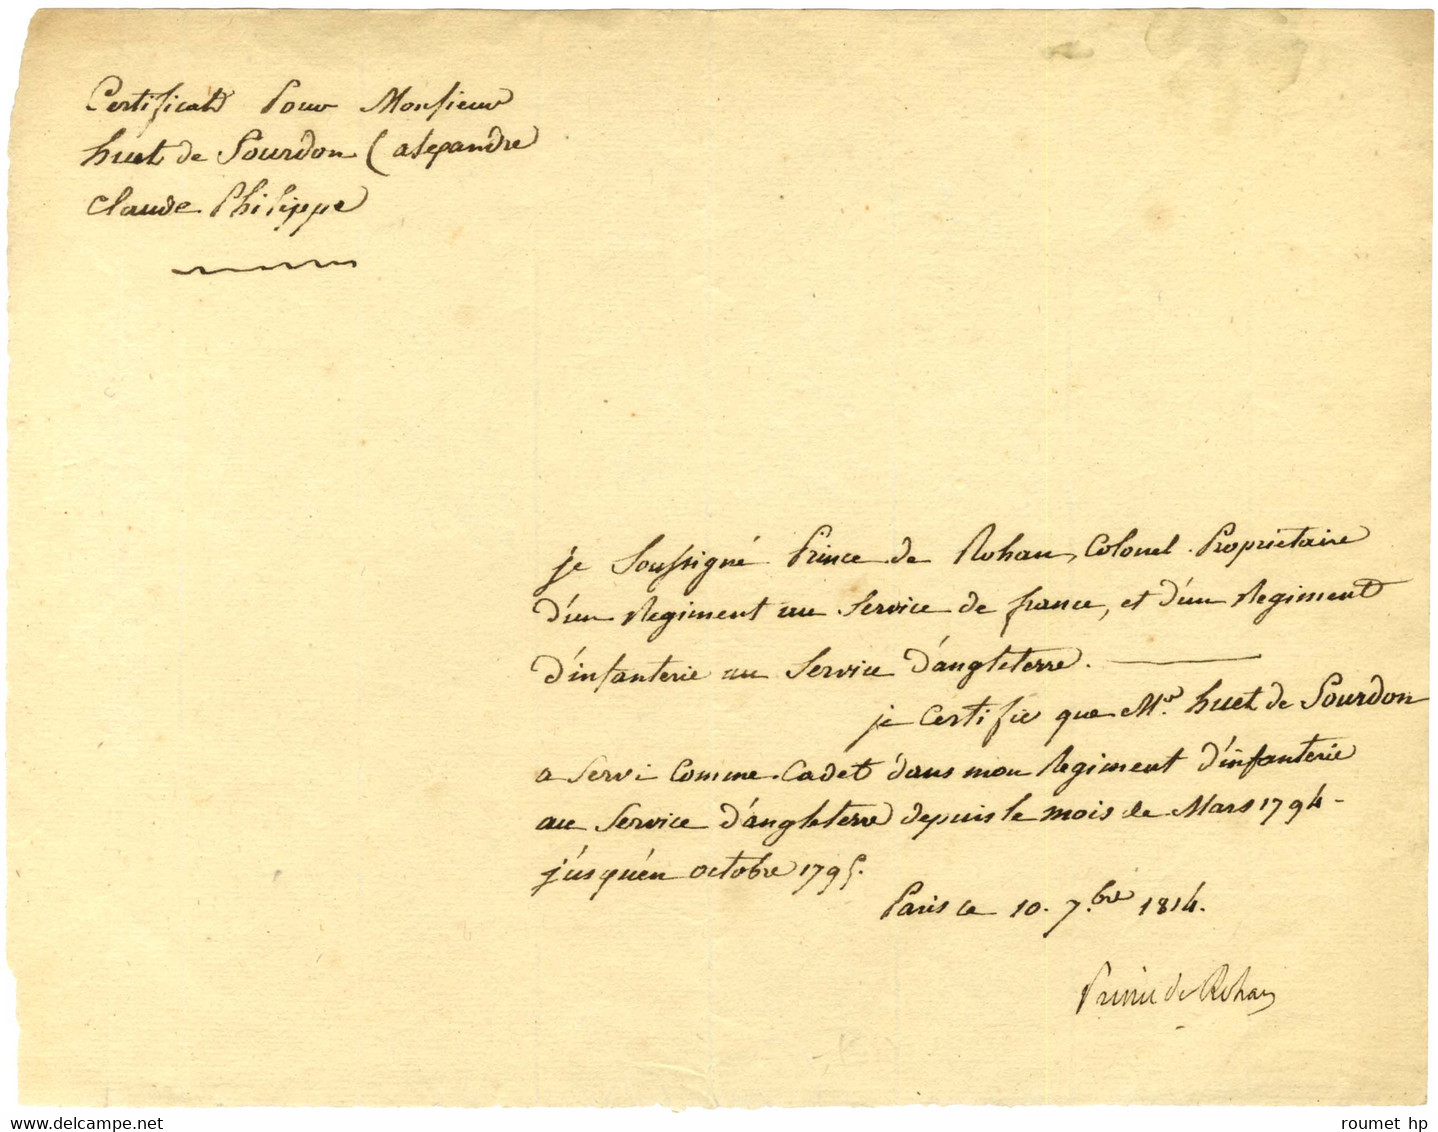 Certificat Pour Monsieur
huet de Sourdon (alexandre
Claude Philippe
je Soussigné Prince de Rohan, Colonel Proprietaire
d'un Regiment au Service de france, et d'un Regiment
d'infanterie au Service d'angleterre.
je Certifie que Mr. huet de Sourdon
a Servi Comme Cadet dans mon Regiment d'infanterie
au Service d'angleterre depuis le mois de Mars 1794
jusqu'en octobre 1795.
Paris ce 10. 7.bre 1814.
Prince de Rohan
www.delcampe.net
roumet hp